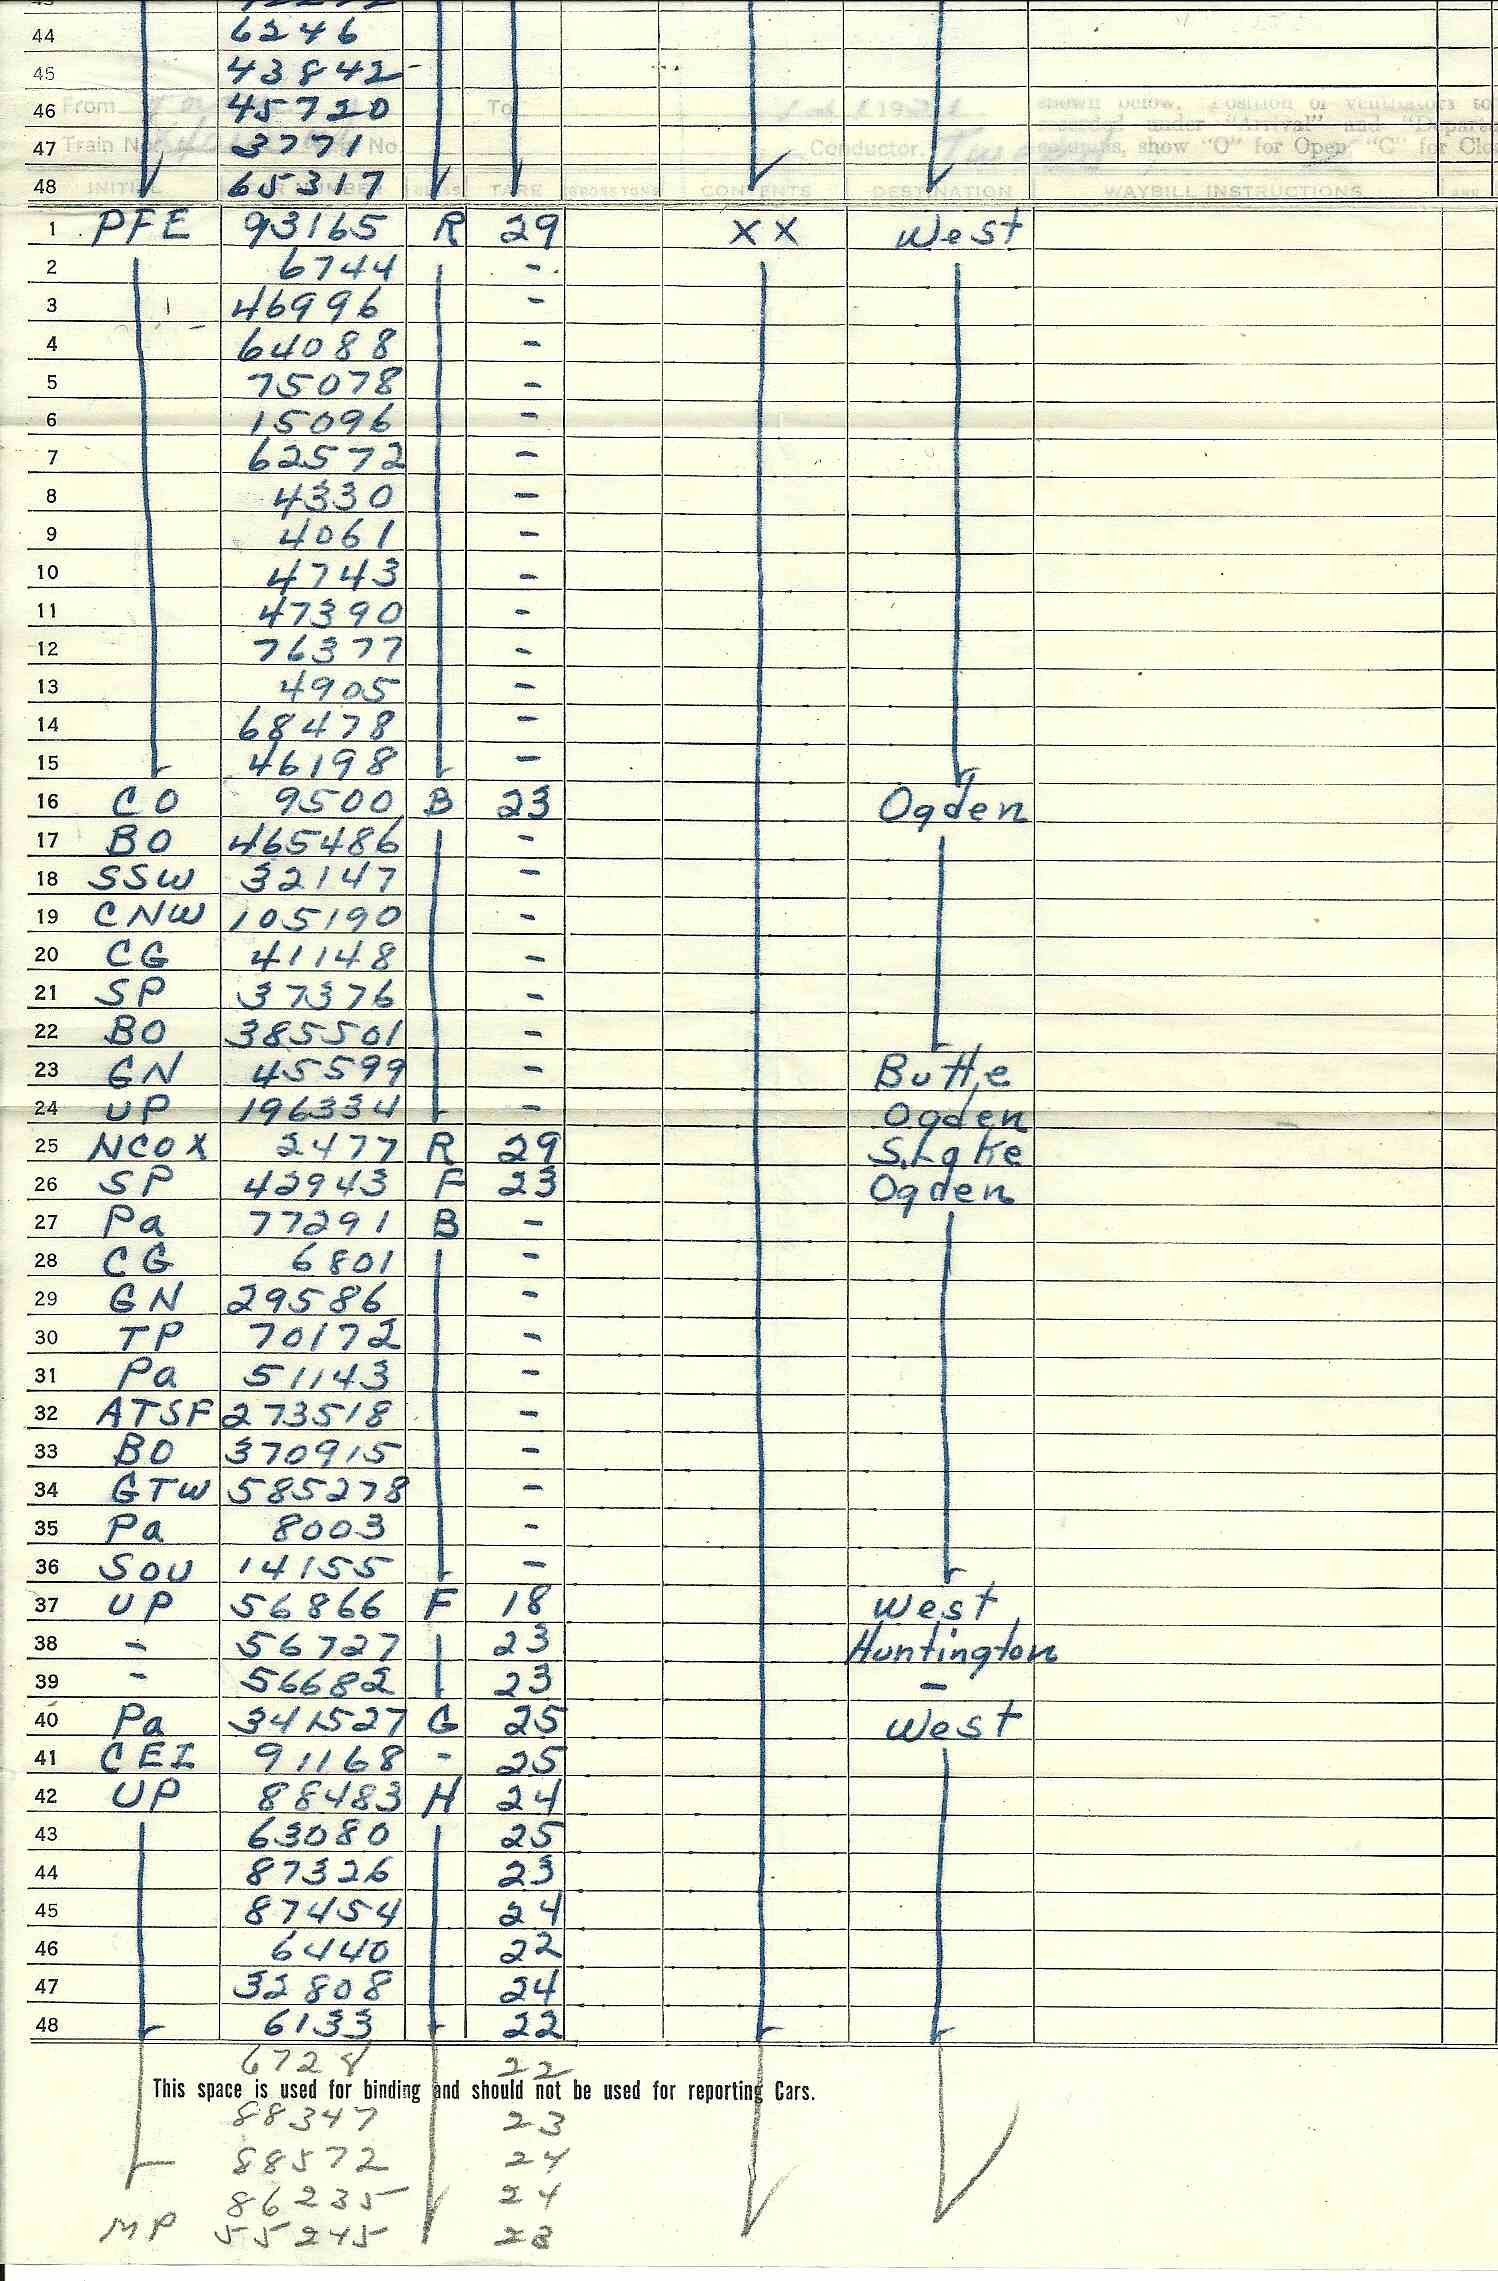 44 6246
45 43842-
46 45720
From To 192 shown below. Position of ventilators to
recorded under "Arrival" and "Depart
47 3771
Train No. No Conductor. columns, show "O" for Open "C" for Clo
48 65317
INITIAL NUMBER CLASS TARE GROSS TONS CONTENTS DESTINATION WAYBILL INSTRUCTIONS
1 PFE 93165 R 29 XX West
2 6744 -
3 46996 -
4 64088 -
5 75078 -
6 15096 -
7 62572 -
8 4330 -
9 4061 -
10 4743 -
11 47390 -
12 76377 -
13 4905 -
14 68478 -
15 46198 -
16 CO 9500 B 23 Ogden
17 BO 465486 -
18 SSW 32147 -
19 CNW 105190 -
20 CG 41148 -
21 SP 37376 -
22 BO 385501 -
23 GN 45599 - Butte
24 UP 196334 - Ogden
25 NCOX 2477 R 29 S.Lake
26 SP 42943 F 23 Ogden
27 Pa 77291 B -
28 CG 6801 -
29 GN 29586 -
30 TP 70172 -
31 Pa 51143 -
32 ATSF 273518 -
33 BO 370915 -
34 GTW 585278 -
35 Pa 8003 -
36 SOU 14155 -
37 UP 56866 F 18 West
38 - 56727 23 Huntington
39 - 56682 23 -
40 Pa 341527 G 25 West
41 CEI 91168 - 25
42 UP 88483 H 24
43 63080 25
44 87326 23
45 87454 24
46 6440 22
47 32808 24
48 6133 22
6728 22
This space is used for binding and should not be used for reporting Cars.
88347 23
88572 24
86235 24
MP 55245 23